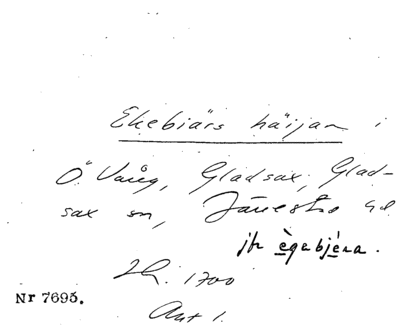 Ekebiärs häijan i
Ö. Vång, Gladsax, Glad-
sax sn, Järrestads hd.
jfr ègabjèra.
Lh. 1700
Nr 7695.
Akt 1.